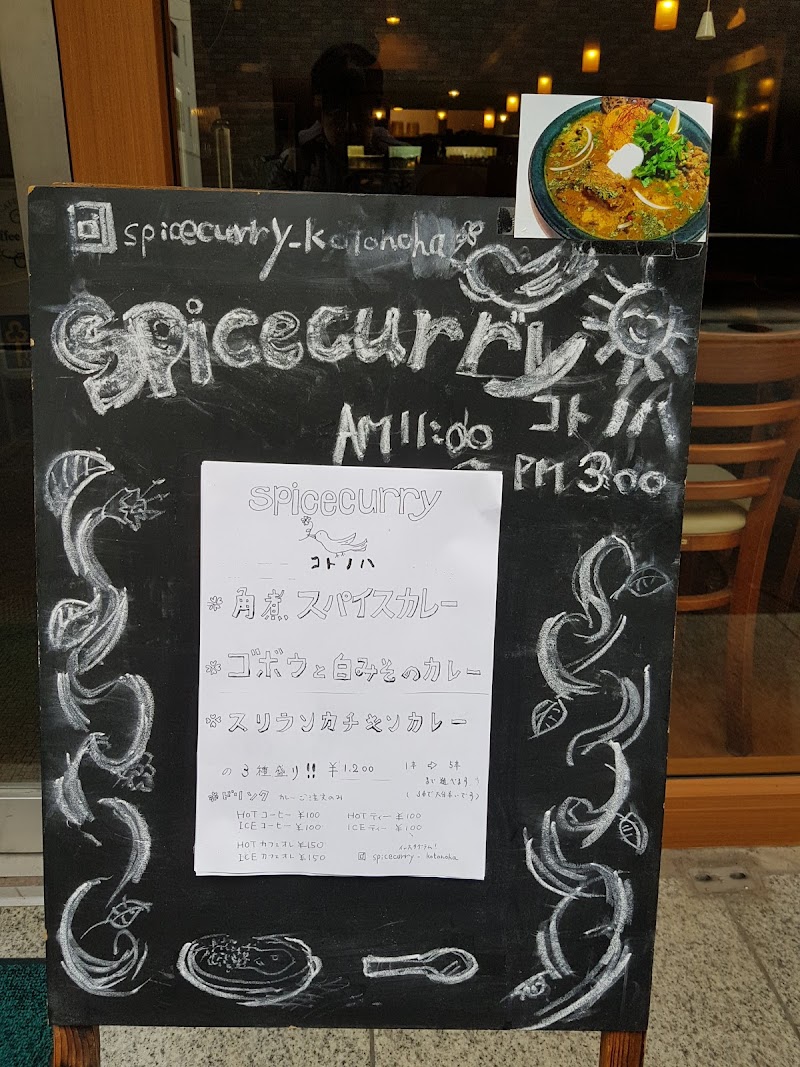 spicecurry_kotonoha
spicecurry
コトノハ
AM11:00
PM 3:00
spicecurry
コトノハ
＊角煮スパイスカレー
＊ゴボウと白みそのカレー
＊スリランカチキンカレー
の3種盛り!! ¥1.200
1辛 ⇨ 5辛
まで選べます
＊ドリンク カレーご注文のみ
HOT コーヒー ¥100
ICE コーヒー ¥100
HOT ティー ¥100
ICE ティー ¥100
HOT カフェオレ ¥150
ICE カフェオレ ¥150
インスタグラム!
spicecurry - kotonoha